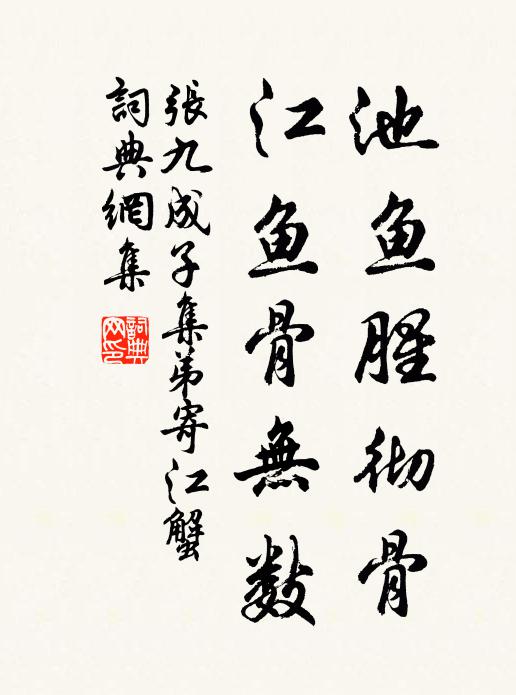 池鱼腥彻骨
江鱼骨無数
張九成子集弟寄江蟹
詞典網集
詞典网印